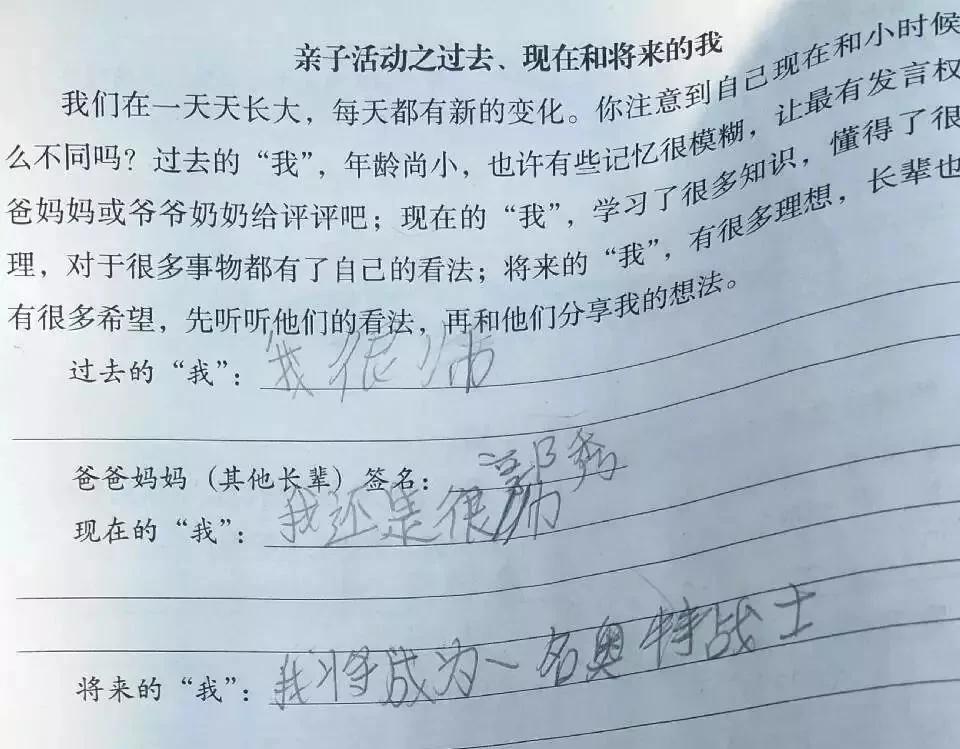 亲子活动之过去、现在和将来的我
我们在一天天长大，每天都有新的变化。你注意到自己现在和小时候
么不同吗？过去的“我”，年龄尚小，也许有些记忆很模糊，让最有发言权
爸妈妈或爷爷奶奶给评评吧；现在的“我”，学习了很多知识，懂得了很
理，对于很多事物都有了自己的看法；将来的“我”，有很多理想，长辈也
有很多希望，先听听他们的看法，再和他们分享我的想法。
过去的“我”：我很帅
爸爸妈妈（其他长辈）签名：
现在的“我”：我还是很帅
将来的“我”：我将成为一名奥特战士